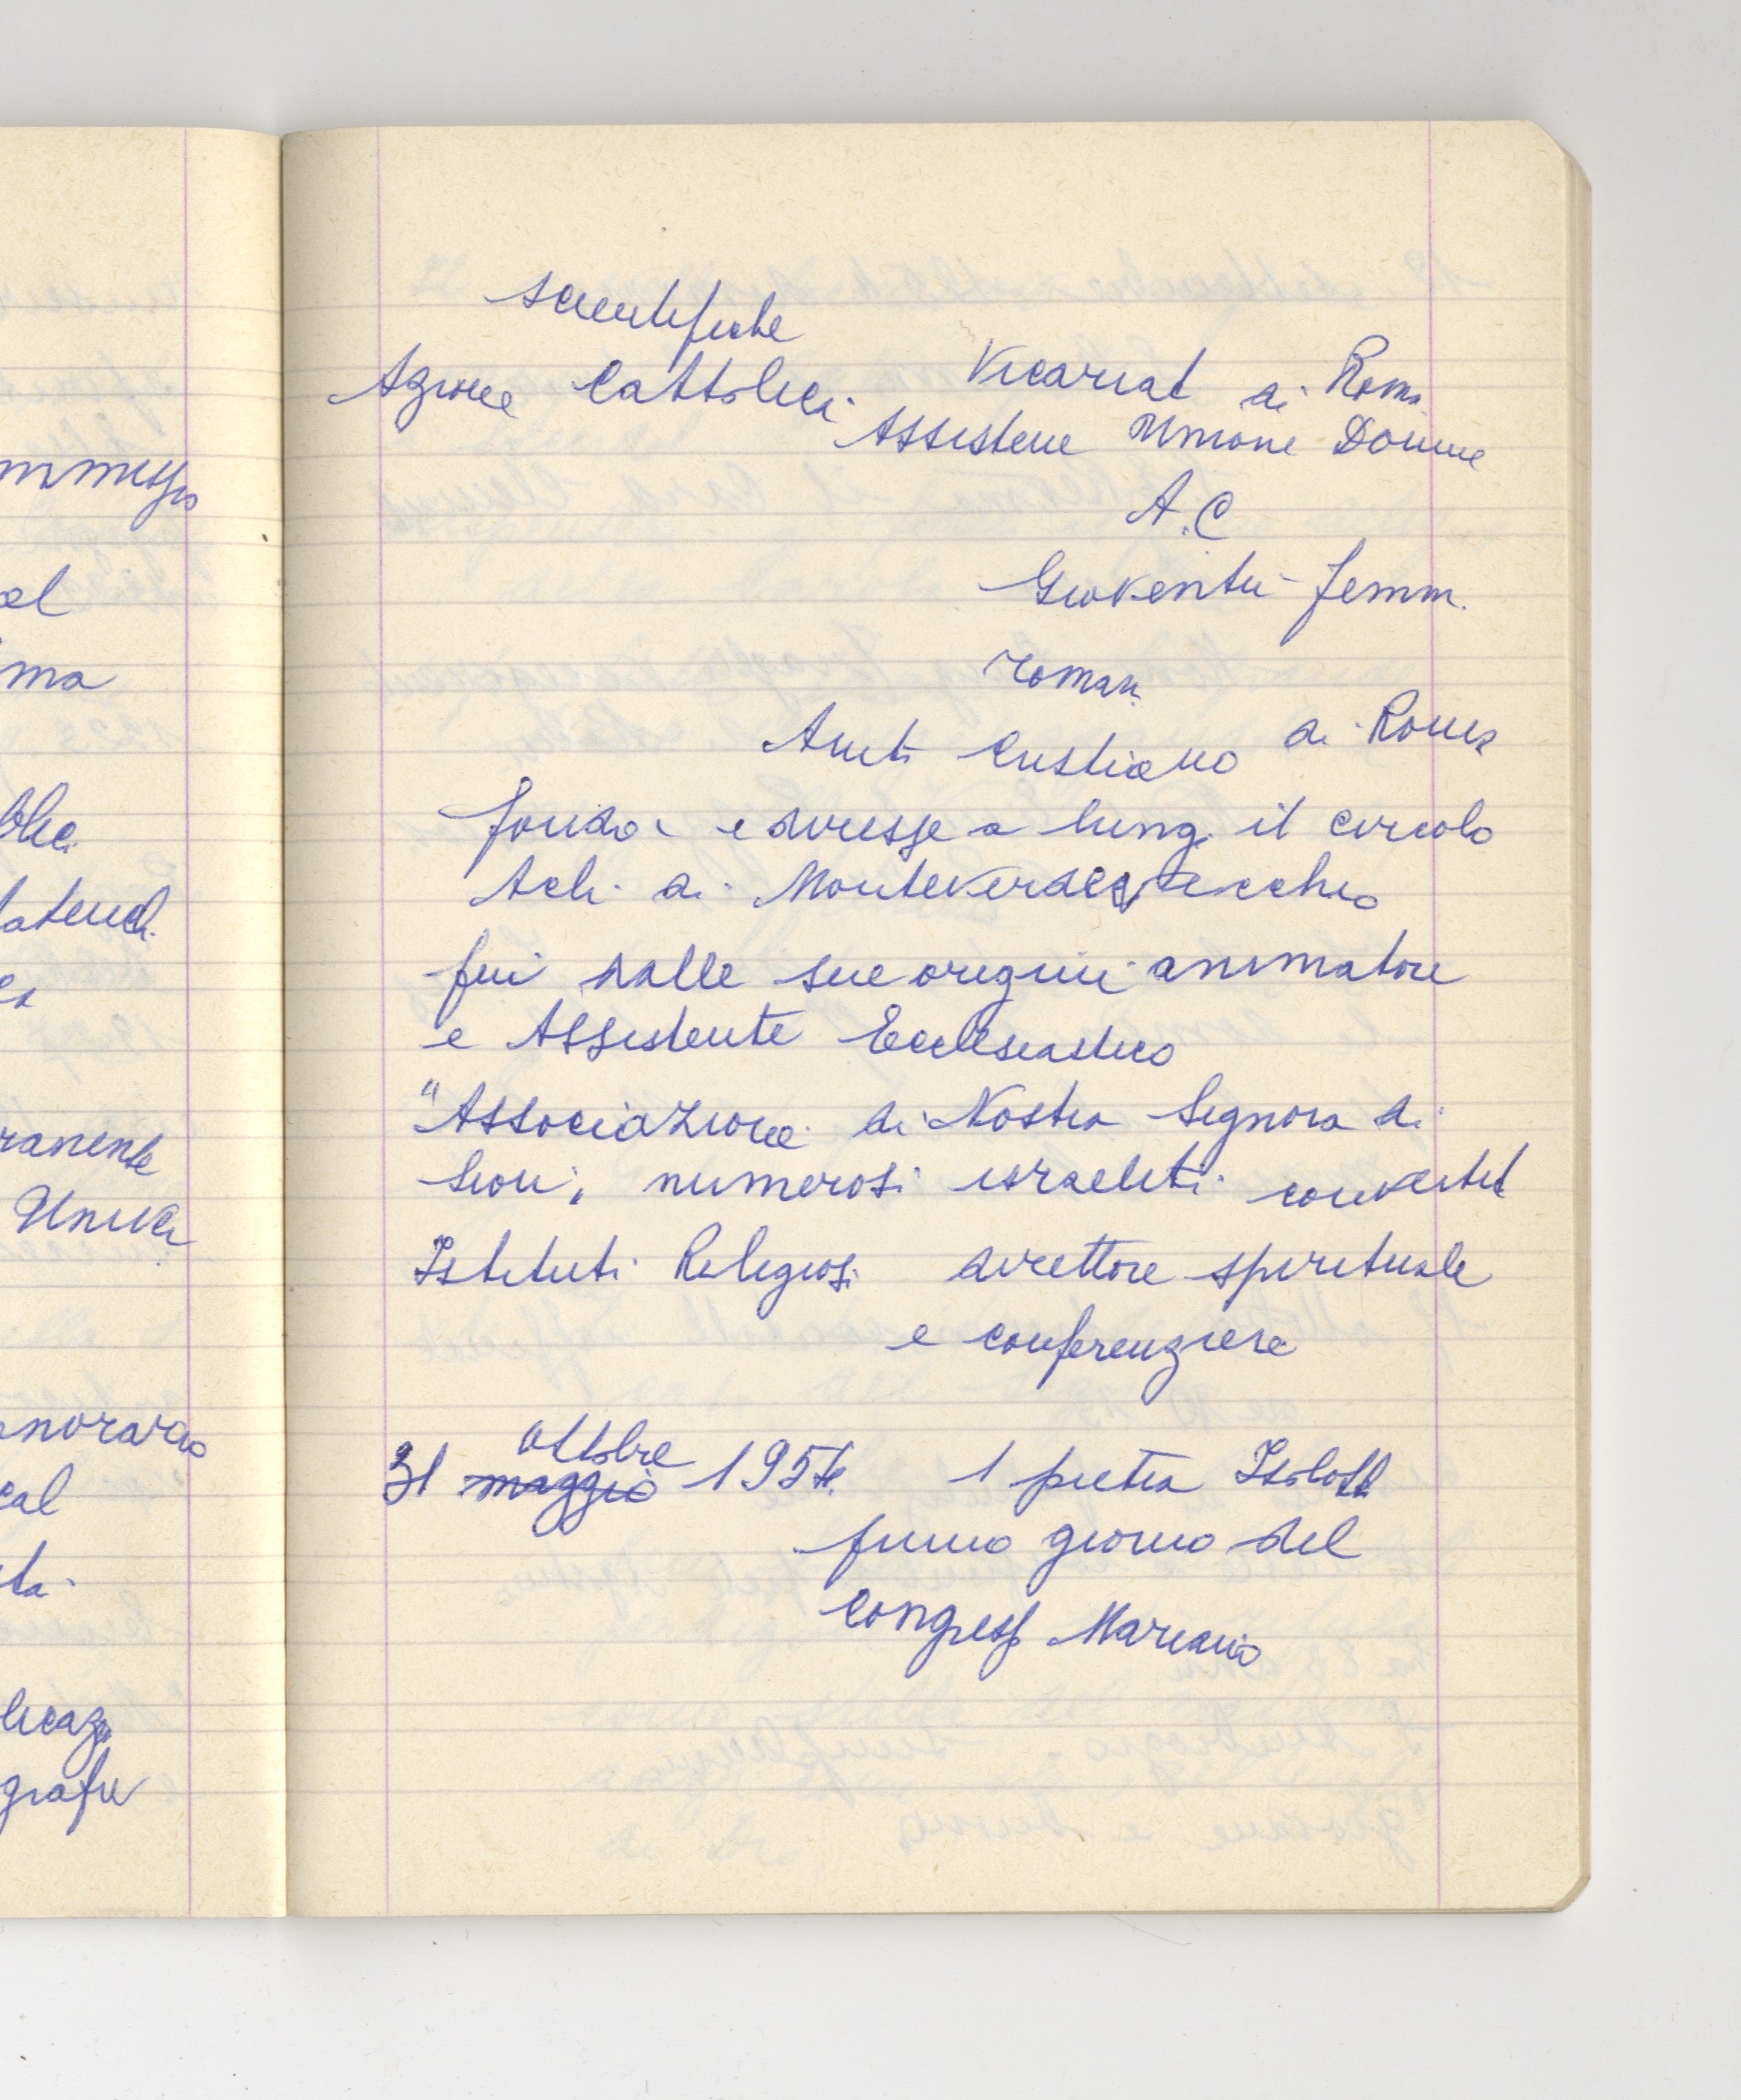 mmesso
al
ma
blic
lateral
ranente
Univer
onorario
cal
ta
licaz
grafie
scientifiche
Azione Cattolica Vicariat di Roma
Assistene Unione Donne
A.C
Gioventù femm.
roman
Amti Cristiano di Roma
fondò e diresse a lung il circolo
Acli di Monteverde Vecchio
fui dalle sue origini animatore
e Assistente Ecclesiastico
"Associazione di Nostra Signora di
Sion", numerosi israeliti convertit
Istituti Religiosi direttore spirituale
e conferenziere
31 maggio ottobre 1954 1 pietra Isolott
primo giorno del
Congress Mariano